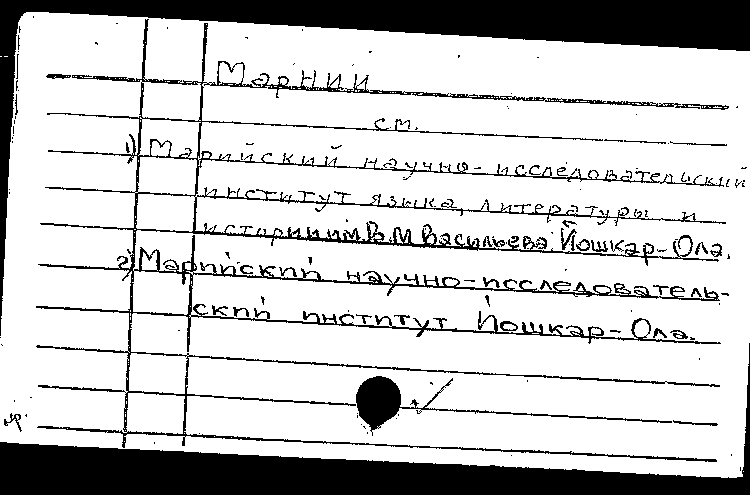 МарНИИ
см.
1) Марийский научно-исследовательский
институт языка, литературы и
истории им. В.М Васильева Йошкар-Ола.
2) Марийский научно-исследователь-
ский институт. Йошкар-Ола.